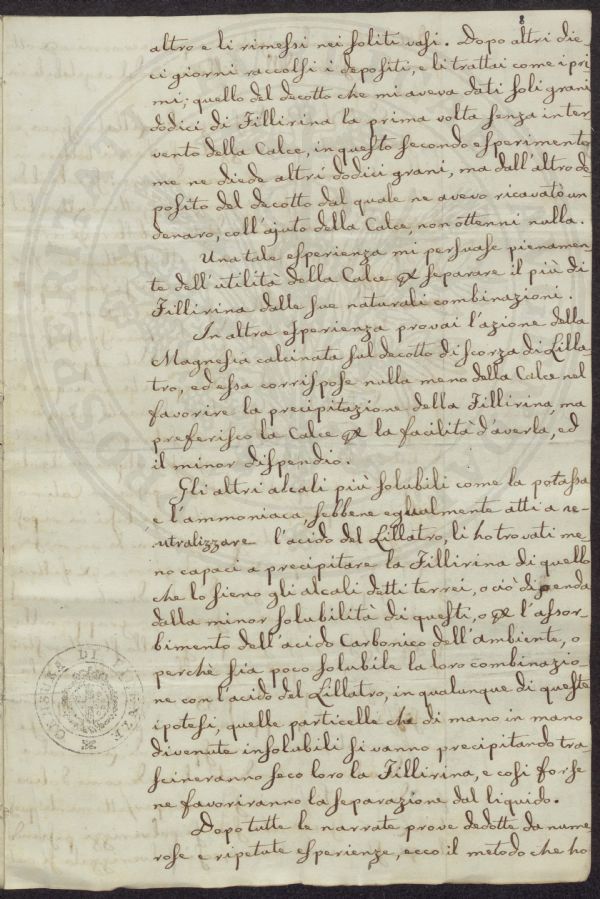 8
altro e li rimessi nei soliti vasi. Dopo altri die-
ci giorni raccolsi i depositi, e li trattai come i pri-
mi; quello del decotto che mi aveva dati soli grani
dodici di Fillirina la prima volta senza inter-
vento della Calce, in questo secondo esperimento
me ne diede altri dodici grani, ma dall'altro de-
posito del decotto dal quale ne avevo ricavato un
denaro, coll'ajuto della Calce, non ottenni nulla.
Una tale esperienza mi persuase pienamen-
te dell'utilità della Calce per separare il più di
Fillirina dalle sue naturali combinazioni.
In altra esperienza provai l'azione della
Magnesia calcinata sul decotto di scorza di Lilla-
tro, ed essa corrispose nulla meno della Calce nel
favorire la precipitazione della Fillirina, ma
preferisco la Calce per la facilità d'averla, ed
il minor dispendio.
Gli altri alcali più solubili come la potassa
e l'ammoniaca, sebbene egualmente atti a ne-
utralizzare l'acido del Lillatro, li ho trovati me-
no capaci a precipitare la Fillirina di quello
che lo sieno gli alcali detti terrei, o ciò dipenda
dalla minor solubilità di questi, o per l'assor-
bimento dell'acido Carbonico dell'ambiente, o
perchè sia poco solubile la loro combinazio-
ne con l'acido del Lillatro, in qualunque di queste
ipotesi, quelle particelle che di mano in mano
divenute insolubili si vanno precipitando tra-
scineranno seco loro la Fillirina, e così forse
ne favoriranno la separazione dal liquido.
Dopo tutte le narrate prove dedotte da nume-
rose e ripetute esperienze, ecco il metodo che ho
CESURA DI